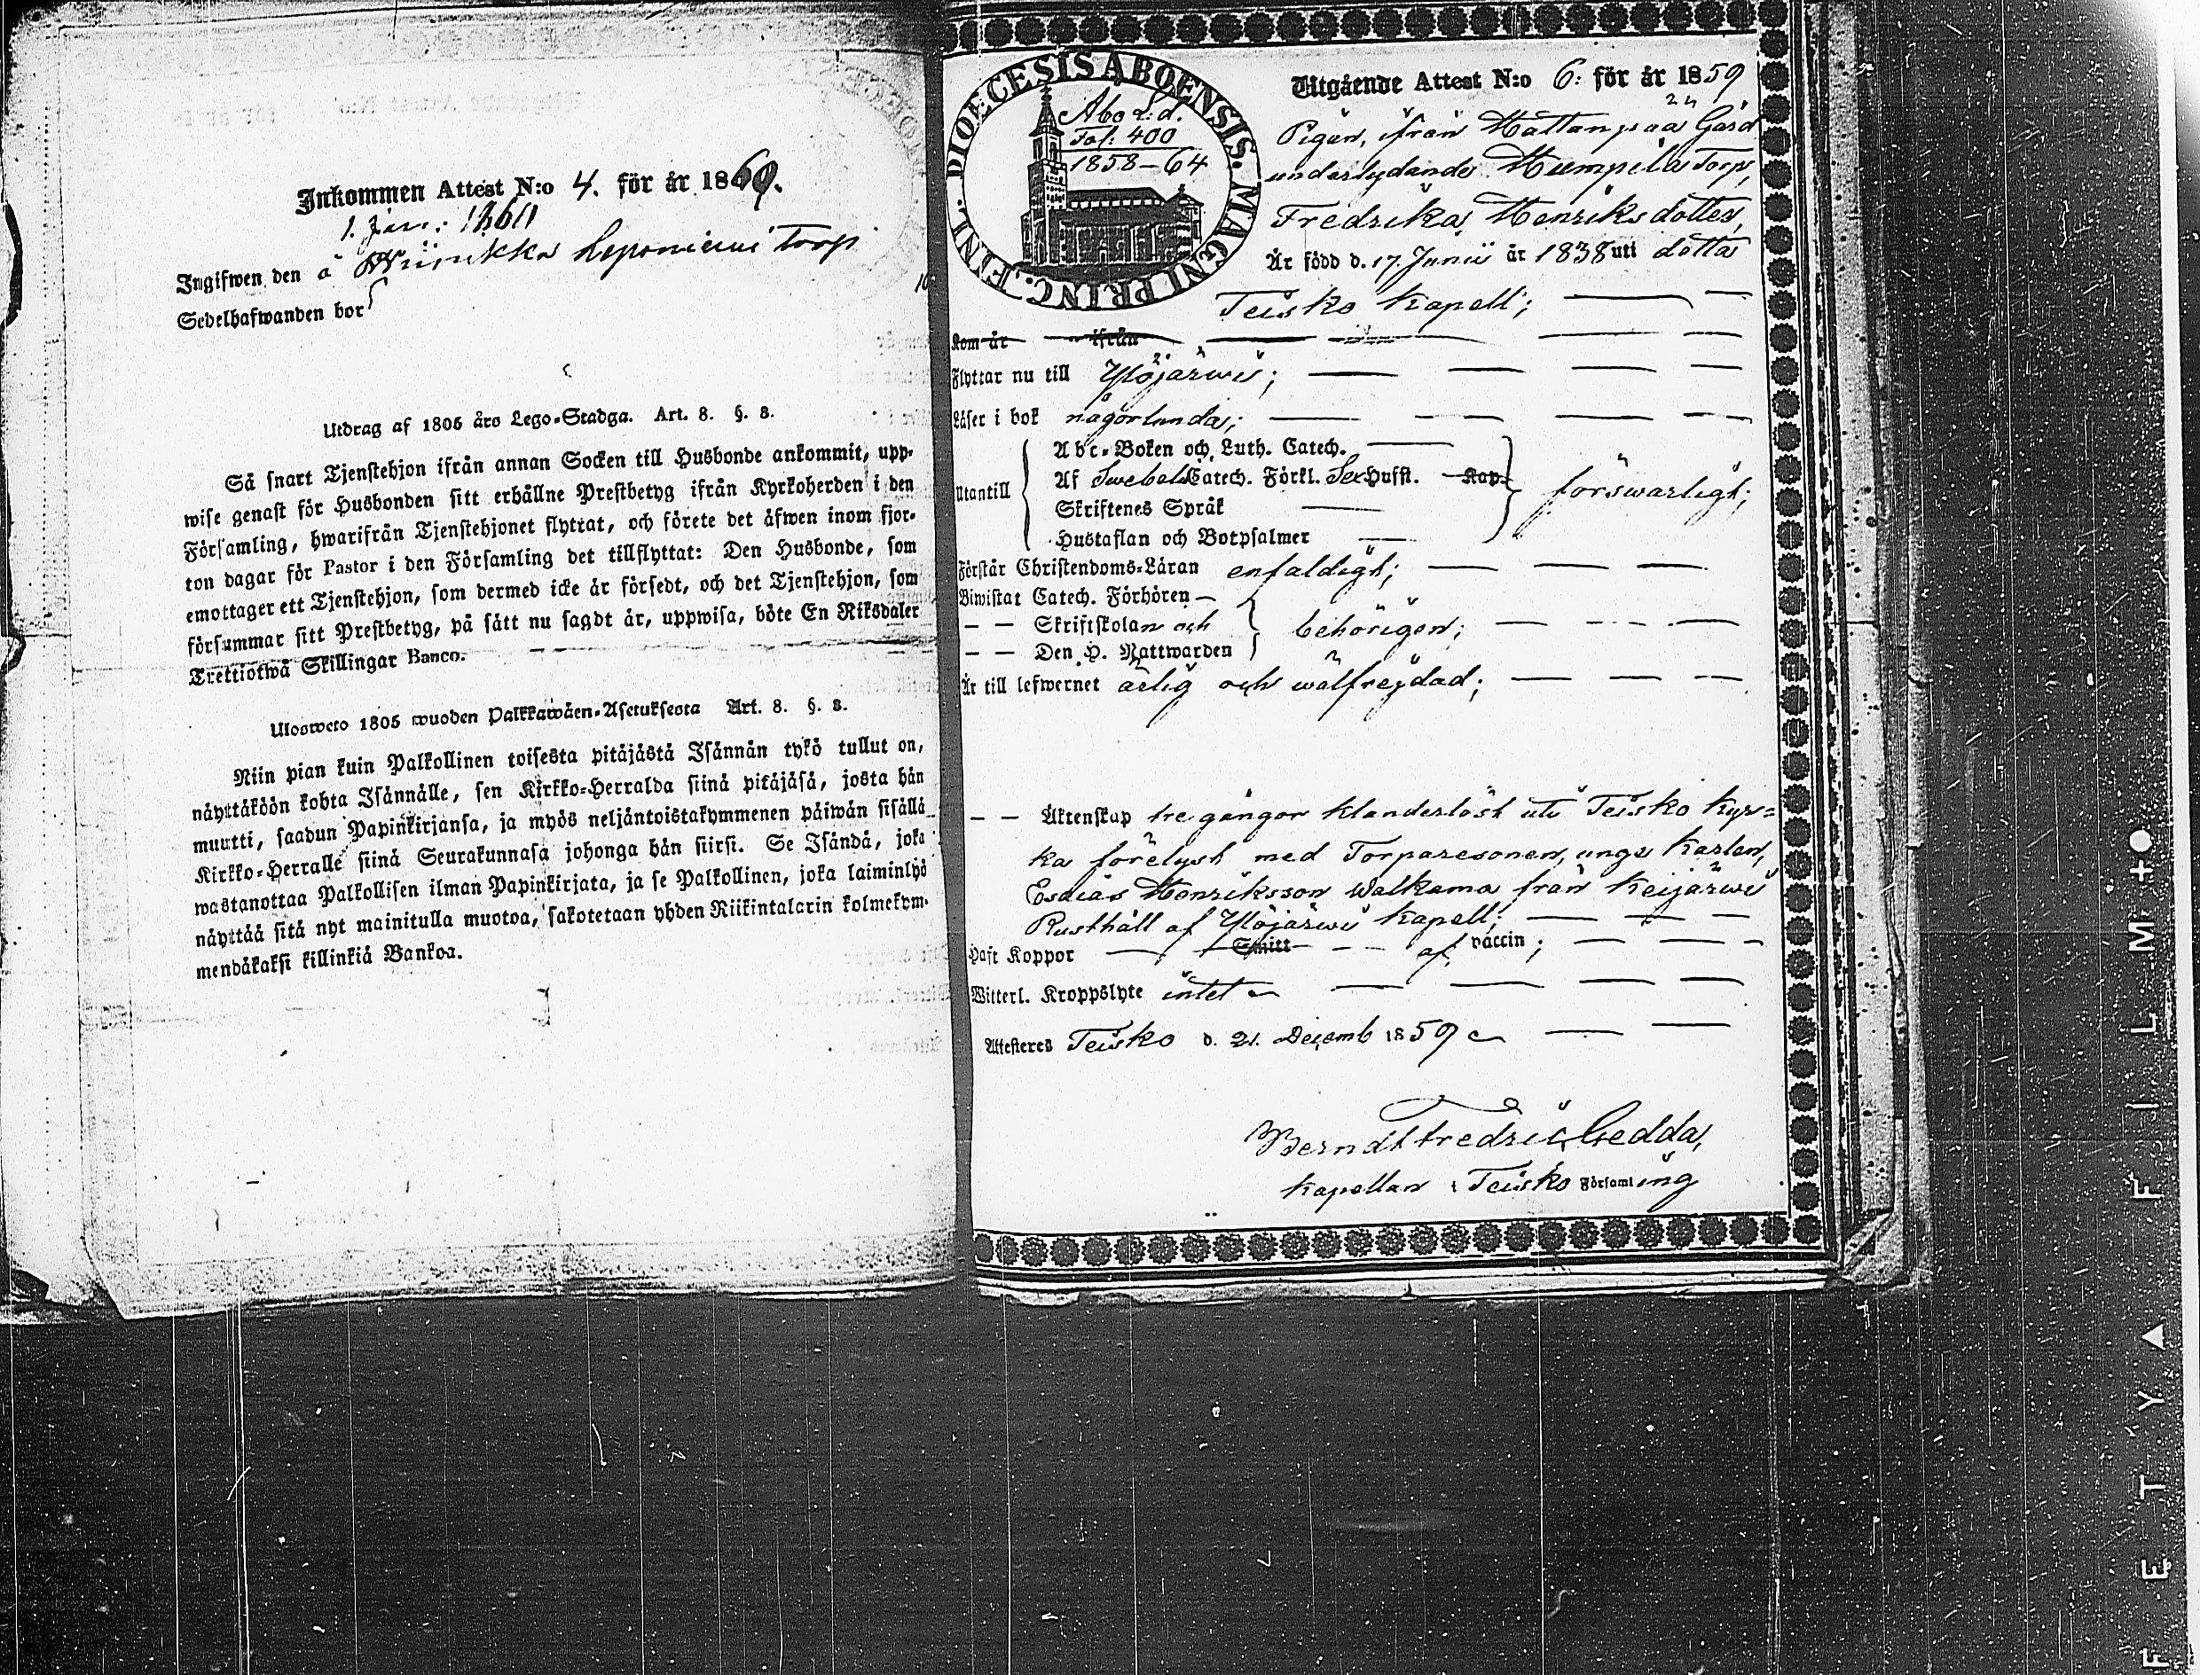 Inkommen Attest N:o 4. för år 1860.
1. Jan: 1860
Ingifwen den å Torp
Sedelhafwanden bor
Utdrag af 1805 års Lego-Stadga. Art. 8. §. 8.
Så snart Tjenstehjon ifrån annan Socken till Husbonde ankommit, upp-
wise genast för Husbonden sitt erhållne Prestbetyg ifrån Kyrkoherden i den
Församling, hwarifrån Tjenstehjonet flyttat, och förete det äfwen inom fjor-
ton dagar för Pastor i den Församling det tillflyttat: Den Husbonde, som
emottager ett Tjenstehjon, som dermed icke är försedt, och det Tjenstehjon, som
försummar sitt Prestbetyg, på sätt nu sagdt är, uppwisa, böte En Riksdaler
Trettiotwå Skillingar Banco.
Ulosweto 1805 wuoden Palkkawäen-Asetuksesta Art. 8. §. 8.
Niin pian kuin Palkollinen toisesta pitäjästä Isännän tykö tullut on,
näyttäköön kohta Isännälle, sen Kirkko-Herralda siinä pitäjäsä, josta hän
muutti, saadun Papinkirjansa, ja myös neljäntoistakymmenen päiwän sisällä
Kirkko-Herralle siinä Seurakunnasa johonga hän siirsi. Se Isändä, joka
wastanottaa Palkollisen ilman Papinkirjata, ja se Palkollinen, joka laiminlyö
näyttää sitä nyt mainitulla muotoa, sakotetaan yhden Riikintalarin kolmekym-
mendäkaksi killinkiä Bankoa.
DIOECESIS ABOENSIS. MAGNI PRINC. FINL.
Abo L:d.
Fol: 400
1858-64
Utgående Attest N:o 6: för år 1859
Pigan, ifrån Mattanpää Gård
underlydande Torp,
Fredrika Henriksdotter,
Är född d. 17. Junii år 1838 uti detta
Teisko Kapell;
Kom år ifrån
Flyttar nu till Ylöjärwi;
Läser i bok någorlunda;
Abc-Boken och Luth. Catech.
Af Swebel. Catech. Förkl. Sex Hufst. Kap.
Utantill
Skriftenes Språk
förswarligt;
Hustaflan och Botpsalmer
Förstår Christendoms-Läran enfaldigt;
Biwistat Catech. Förhören
— — Skriftskolan och behörigen;
— — Den H. Nattwarden
Är till lefwernet ärlig och wälfrejdad;
— — Äktenskap tre gångor klanderlöst uti Teisko Kyr=
ka förelyst med Torparesonen, unge Karlen,
Esaias Henriksson Walkama från Keijärwi
Rusthåll af Ylöjärwi Kapell;
Haft Koppor Smitt af vaccin;
Witterl. Kroppslyte intet
Attesteres Teisko d. 21. Decemb 1859
Berndt Fredric Gedda,
Kapellan i Teisko Församling
FILM
SAFETY